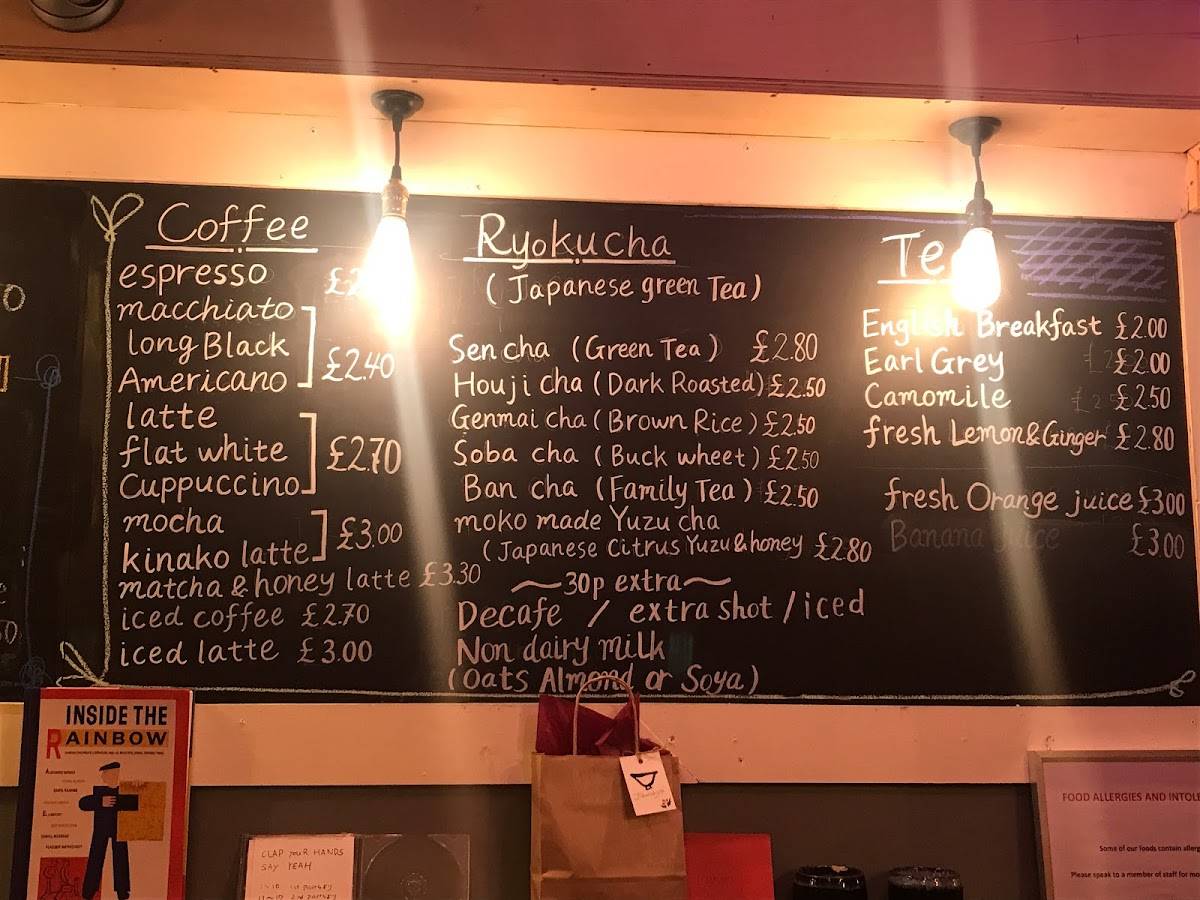 Coffee
espresso
macchiato
long Black
Americano
£2.40
latte
flat white
Cuppuccino
£2.70
mocha
kinako latte
£3.00
matcha & honey latte £3.30
iced coffee £2.70
iced latte £3.00
Ryokucha
(Japanese green Tea)
Sencha (Green Tea) £2.80
Houji cha (Dark Roasted) £2.50
Genmai cha (Brown Rice) £2.50
Soba cha (Buck wheet) £2.50
Ban cha (Family Tea) £2.50
moko made Yuzu cha
(Japanese Citrus Yuzu & honey £2.80
~30p extra~
Decafe / extra shot / iced
Non dairy milk
(Oats Almond or Soya)
English Breakfast £2.00
Earl Grey £2.00
Camomile £2.50
fresh Lemon & Ginger £2.80
fresh Orange juice £3.00
Banana juice £3.00
INSIDE THE
RAINBOW
CLAP youR HANDS
SAY YEAH
FOOD ALLERGIES AND
Some of our foods contain
Please speak to a member of staff for